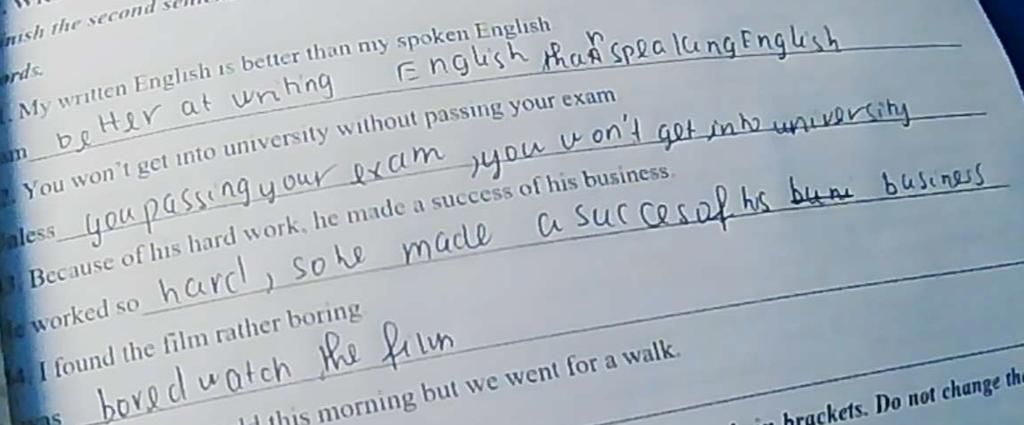 nish the second
ords.
. My written English is better than my spoken English
am better at writing English than speaking English
2. You won't get into university without passing your exam
nless you passing your exam, you won't get into university
3. Because of his hard work, he made a success of his business.
He worked so hard, so he made a succes of his business
4. I found the film rather boring
was bored watch the film
ld this morning but we went for a walk.
brackets. Do not change the